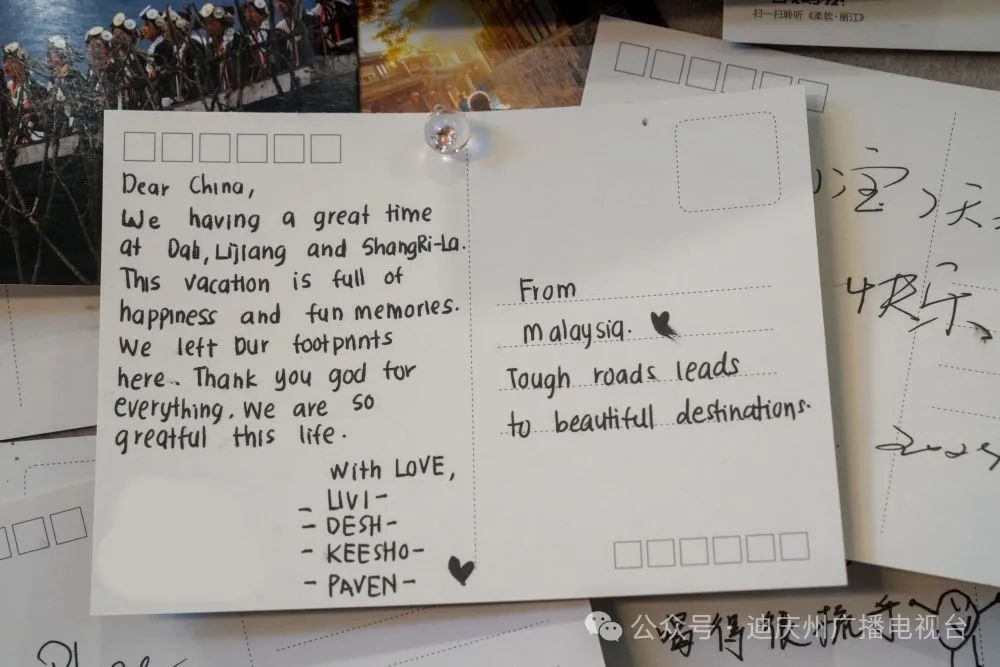 扫一扫聆听《柔软·丽江》
Dear China,
We having a great time
at Dali, Lijiang and ShangRi-La.
This vacation is full of
happiness and fun memories.
We left Our footprints
here.. Thank you god for
everything. We are so
greatful this life.
With LOVE,
- LIVI -
- DESH -
- KEESHO -
- PAVEN -
From
malaysia.
Tough roads leads
to beautiful destinations.
宝 天
快乐
得很
公众号 · 迪庆州广播电视台